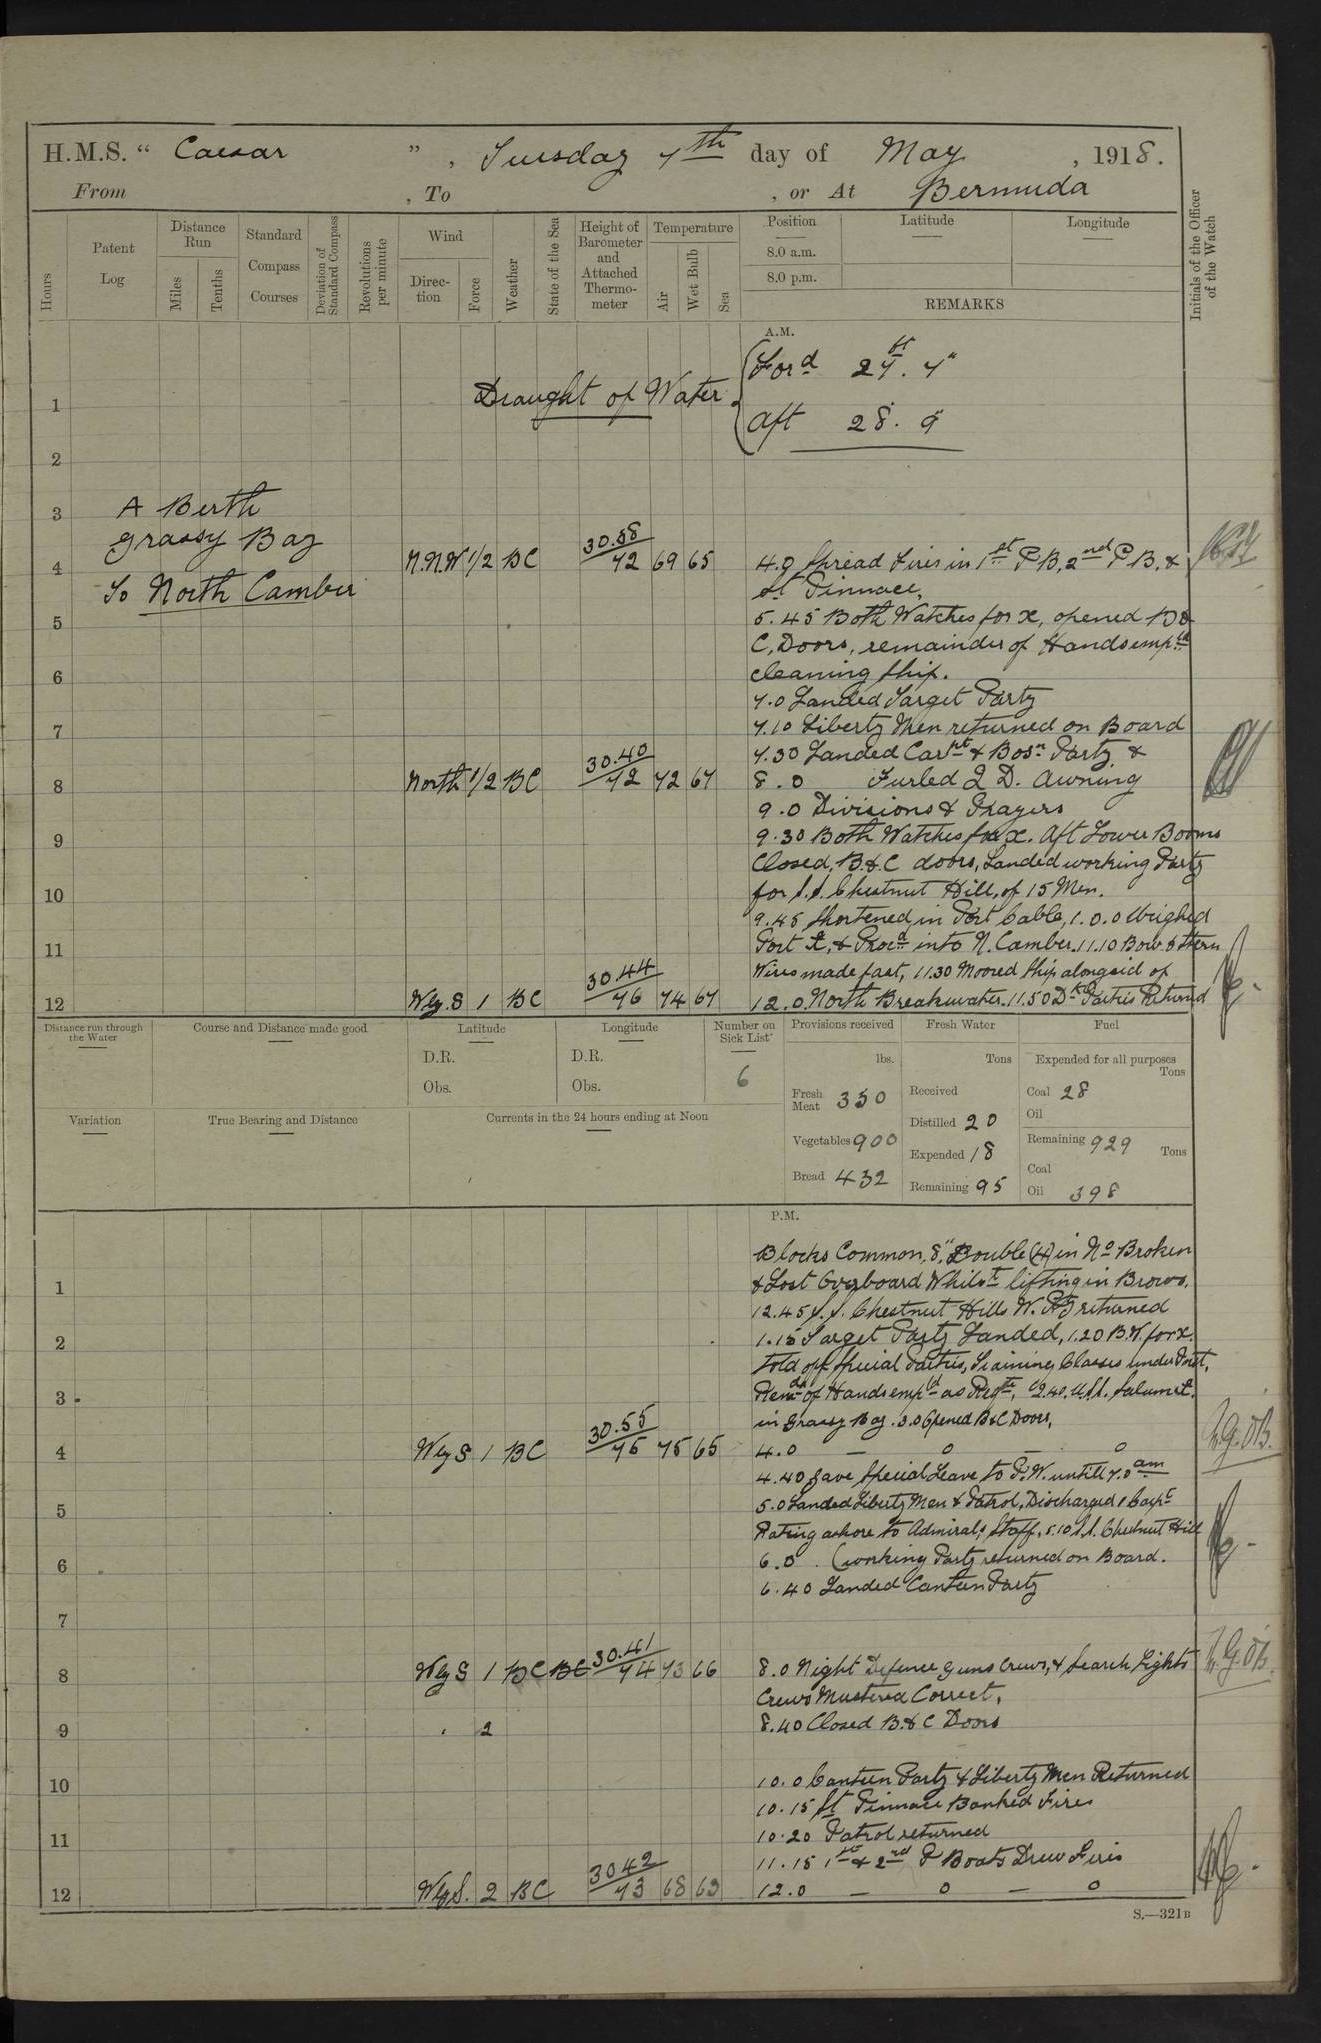 H.M.S. “ Caesar ” , Tuesday 7th day of May , 1918.
From , To , or At Bermuda
Hours
Patent Log
Distance Run
Miles
Tenths
Standard Compass Courses
Deviation of Standard Compass
Revolutions per minute
Wind
Direction
Force
Weather
State of the Sea
Height of Barometer and Attached Thermometer
Temperature
Air
Wet Bulb
Sea
Position
8.0 a.m.
8.0 p.m.
Latitude
Longitude
REMARKS
Initials of the Officer of the Watch
A.M.
Draught of Water.
Ford 27ft. 7"
Aft 28. 9"
1
2
3
A Berth
Grassy Bay
To North Camber
4 N.N.W 1/2 BC 30.58 72 69 65
4.0 Spread Fires in 1st P B, 2nd P B, &
St Pinnace.
5
5.45 Both Watches for x, opened B &
C, Doors, remainder of Hands emp.d
6
cleaning Ship.
7.0 Landed Target Party
7
7.10 Liberty Men returned on Board
7.30 Landed Carpnt & Bosn Party &
8 North 1/2 BC 30.40 72 72 67
8.0 Furled Q D. Awning
9.0 Divisions & Prayers
9
9.30 Both Watches for x. Aft Lower Booms
Closed, B.&C doors, Landed working Party
10
for S.S. Chestnut Hill, of 15 Men.
9.45 Shortened in Port Cable, 1.0.0 Weighed
11
Port & Procd into N. Camber. 11.10 Bow & Stern
Wires made fast, 11.30 Moored Ship alongsid of
12 Wly S 1 BC 30.44 76 74 67
12.0. North Breakwater. 11.50 Parties Returned
Distance run through the Water
Course and Distance made good
Latitude
D.R.
Obs.
Longitude
D.R.
Obs.
Number on Sick List
6
Provisions received
lbs.
Fresh Meat 350
Vegetables 900
Bread 432
Fresh Water
Tons
Received
Distilled 20
Expended 18
Remaining 95
Fuel
Expended for all purposes
Tons
Coal 28
Oil
Remaining 929 Tons
Coal
Oil 398
Variation
True Bearing and Distance
Currents in the 24 hours ending at Noon
P.M.
Blocks Common, 8" Double (4) in No Broken
1
& Lost Overboard Whilst lifting in Brows.
12.45 S.S. Chestnut Hills W. Pty returned
2
1.15 Target Party Landed, 1.20 B.W. for x.
Told off Special Parties, Training Classes under Inst,
3
Remdr of Hands emp.d as Reqte, 2.40. U.S.S. Salumet.
in Grassy Bay. 3.0 Opened B&C Doors,
4 Wly S 1 BC 30.55 75 75 65
4.0 — 0 — 0
4.40 Gave Special Leave to P.W. untill 7.0 am
5
5.0 Landed Liberty Men & Patrol, Discharged 1
Rating ashore to Admirals Staff, 5.10 S.S. Chestnut Hill
6
6.0 . (working Party returned on Board.
6.40 Landed Canteen Party
7
8 Wly S 1 BC BC 30.41 74 73 66
8.0 Night Defence Guns Crews, & Search Lights
Crews Mustered Correct,
9 " 2
8.40 Closed B.&C Doors
10
10.0 Canteen Party & Liberty Men Returned
10.15 St Pinnace Banked Fires
11
10.20 Patrol returned
11.15 1st & 2nd P Boats Drew Fires
12 Wly S. 2 BC 30 42 73 68 63
12.0 — 0 — 0
S.—321B